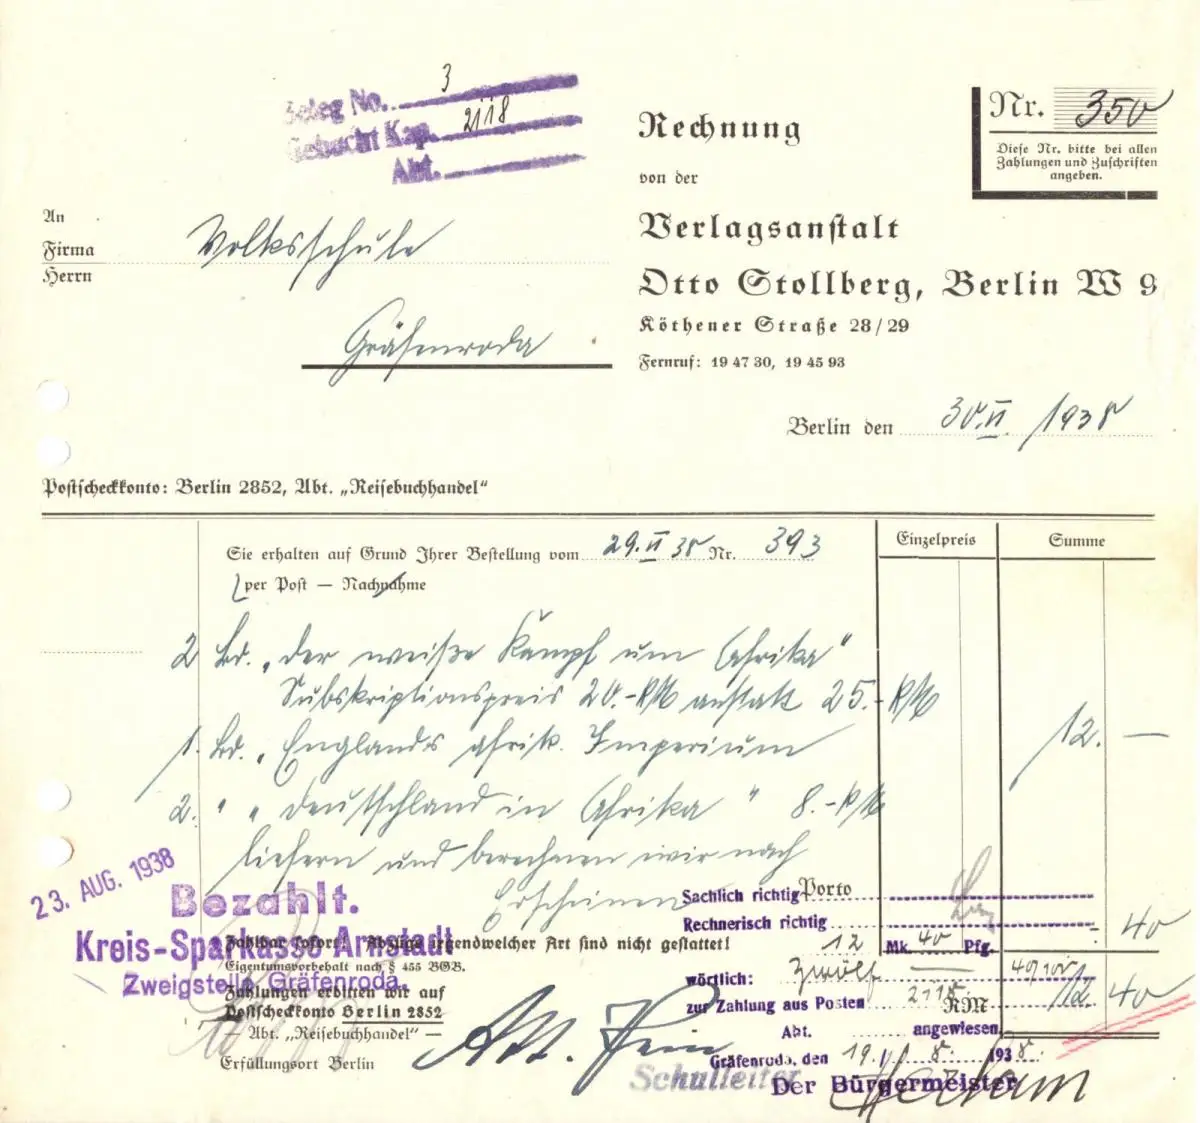 Beleg No. 3
Gebucht Kap. 2118
Abt.
Nr. 350
Diese Nr. bitte bei allen
Zahlungen und Zuschriften
angeben.
Rechnung
von der
Verlagsanstalt
Otto Stollberg, Berlin W 9
Köthener Straße 28/29
Fernruf: 19 47 30, 19 45 93
An
Firma
Herrn
Volksschule
Gräfenroda
Berlin den 30.VI. 1938
Postscheckkonto: Berlin 2852, Abt. „Reisebuchhandel“
Sie erhalten auf Grund Ihrer Bestellung vom 29.VI 38 Nr. 393
Einzelpreis
Summe
per Post — Nachnahme
2 Bd. „Der weiße Kampf um Afrika“
Subskriptionspreis 20.- RM anstatt 25.- RM
1. Bd. „Englands afrik. Imperium
12. —
2. " „Deutschland in Afrika" 8.- RM
liefern und berechnen wir nach
Erscheinen
23. AUG. 1938
Bezahlt.
Kreis-Sparkasse Arnstadt
Zweigstelle Gräfenroda.
Sachlich richtig
Porto
Rechnerisch richtig
40
Zahlbar sofort! Abzüge irgendwelcher Art sind nicht gestattet!
12 Mk. 40 Pfg.
Eigentumsvorbehalt nach § 455 BGB.
wörtlich: Zwölf
Zahlungen erbitten wir auf
Postscheckkonto Berlin 2852
Abt. „Reisebuchhandel“ —
Erfüllungsort Berlin
zur Zahlung aus Posten 2118
RM 12. 40
Abt. angewiesen.
Gräfenroda, den 19. 8. 1938.
Schulleiter
Der Bürgermeister